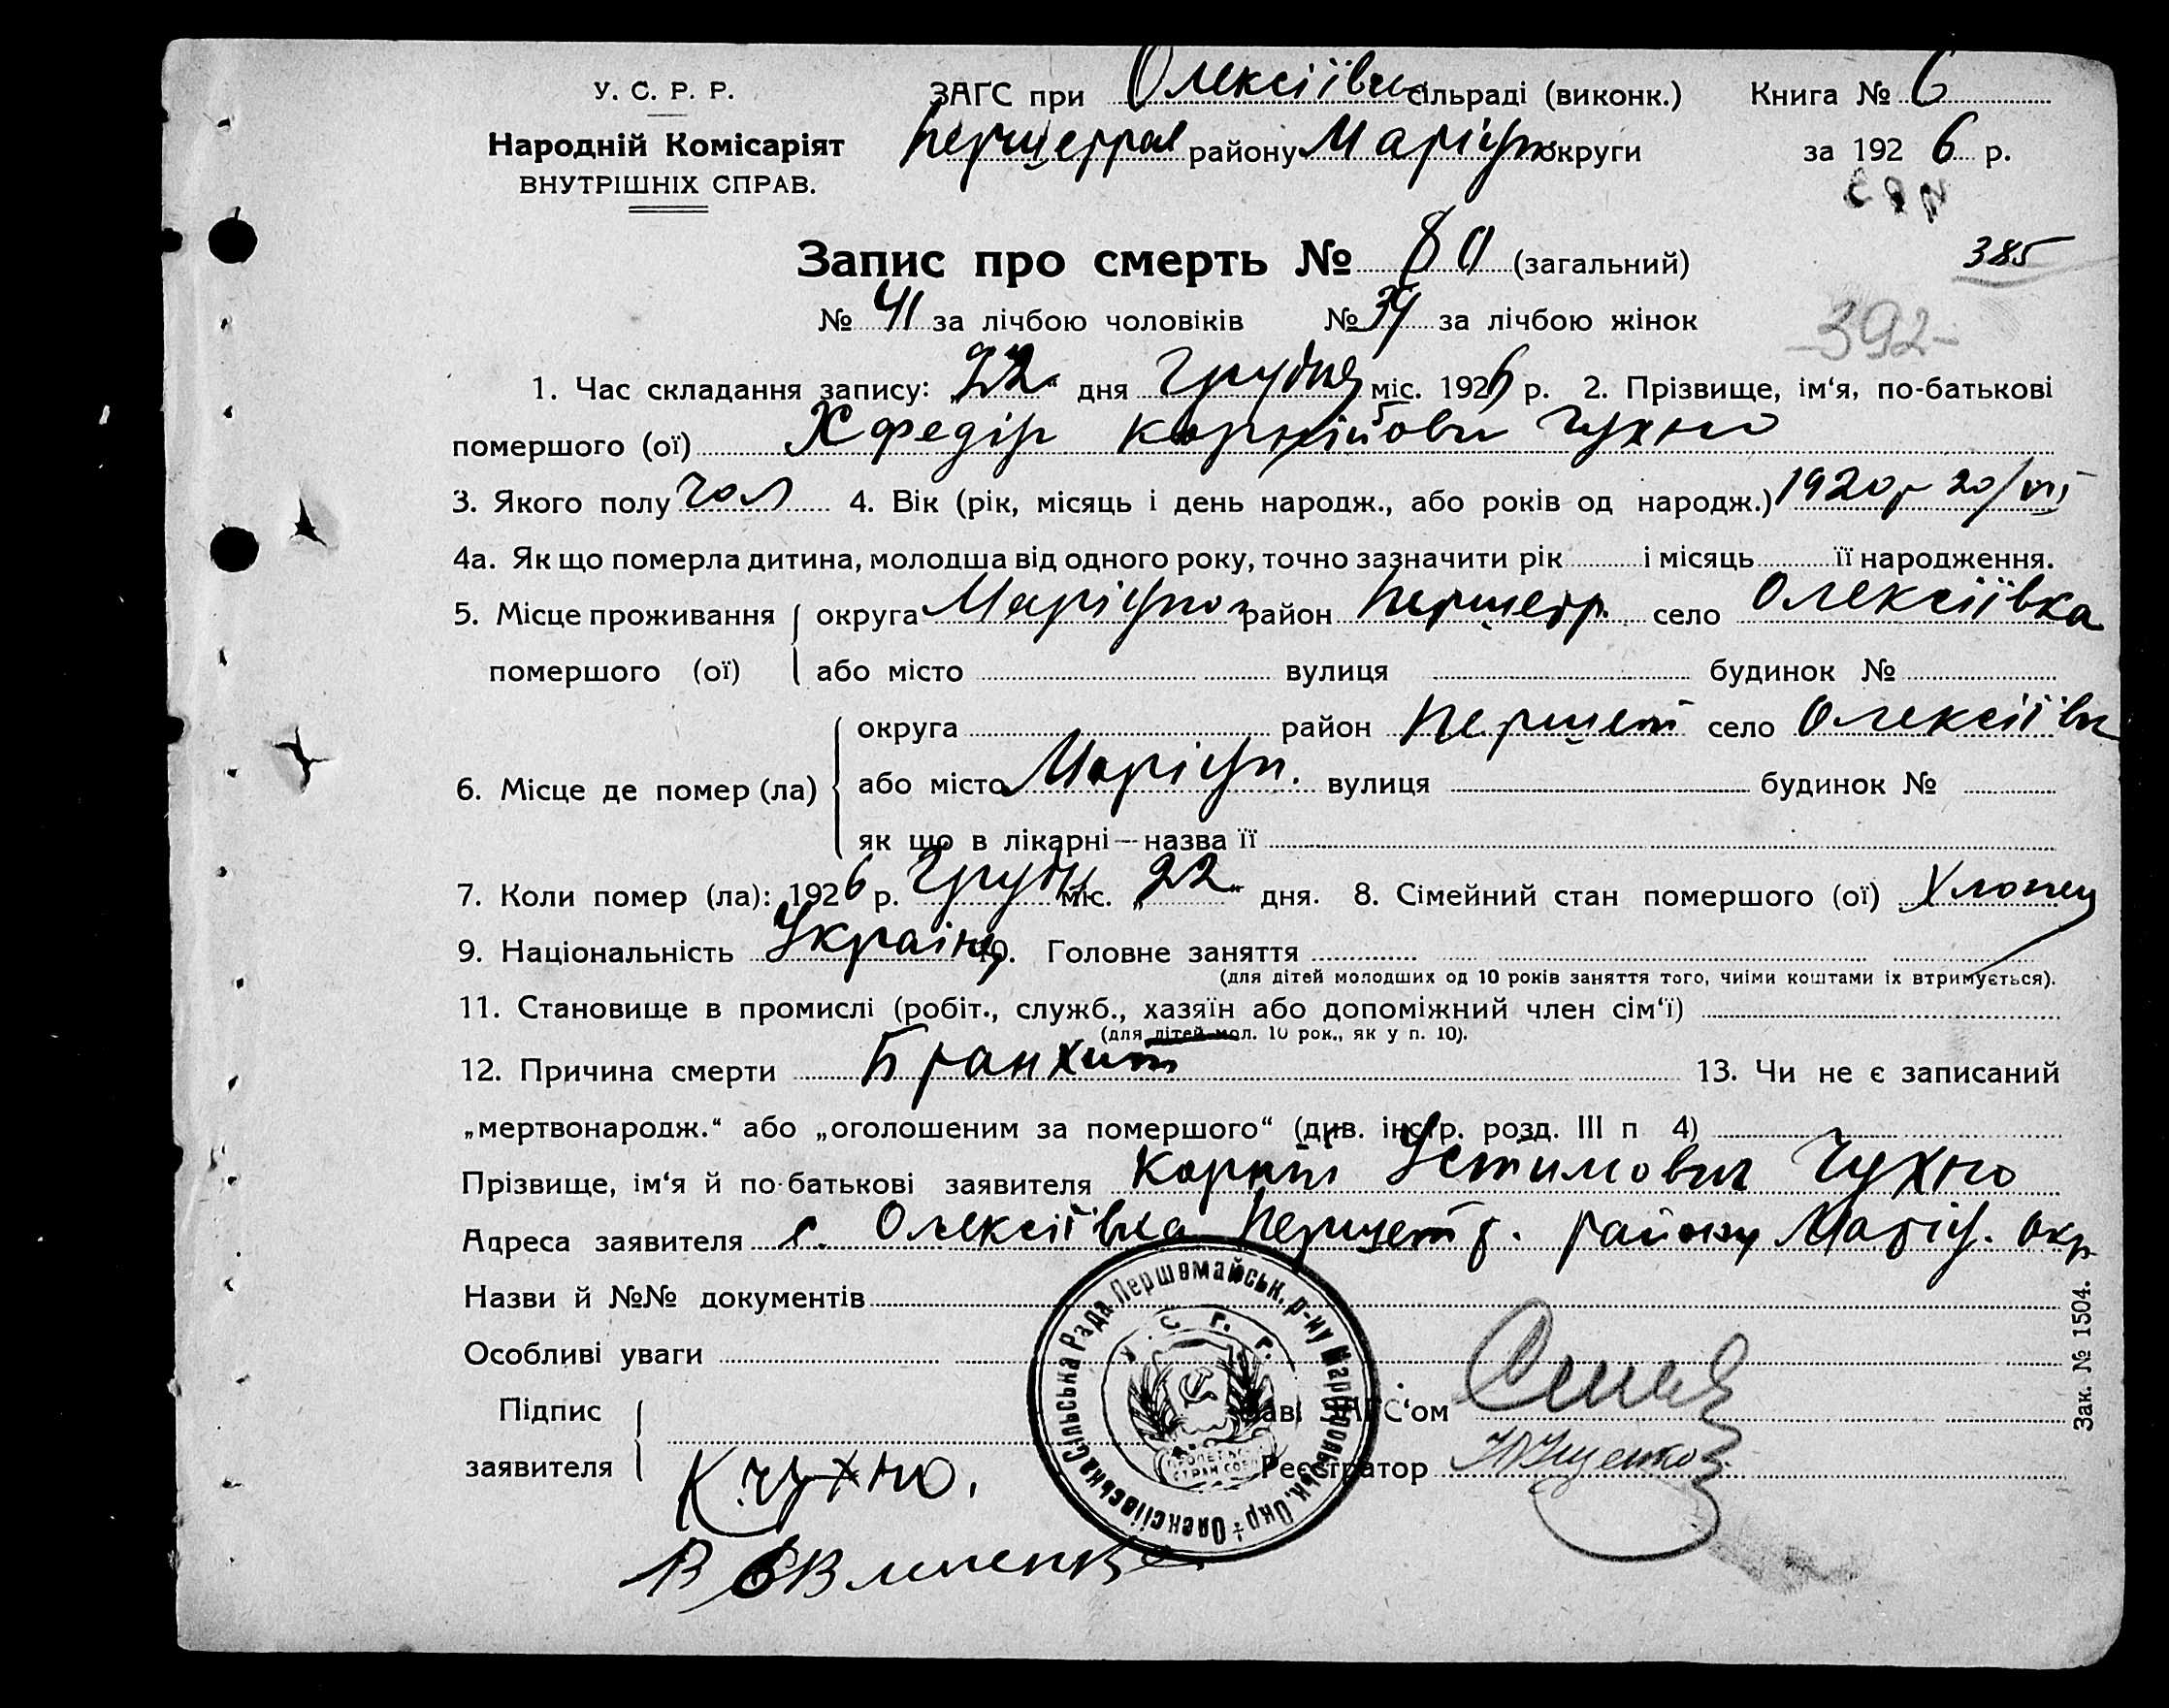 У. С. Р. Р.
Народній Комісаріят
ВНУТРІШНІХ СПРАВ.
ЗАГС при Олексіївск сільраді (виконк.) Книга № 6
району Маріуп округи за 1926 р.
385
Запис про смерть № 80 (загальний)
№ 41 за лічбою чоловіків № 39 за лічбою жінок
392
1. Час складання запису: „22“ дня Грудня міс. 1926 р. 2. Прізвище, ім‘я, по-батькові
помершого (ої) Хфедір Корнійови Чухно
3. Якого полу чол 4. Вік (рік, місяць і день народж., або років од народж.) 1920р 20/VII
4а. Як що померла дитина, молодша від одного року, точно зазначити рік і місяць її народження.
5. Місце проживання округа Маріупол район село Олексіївка
помершого (ої) або місто вулиця будинок №
округа район Першет село Олексіївк
6. Місце де помер (ла) або місто Маріуп. вулиця будинок №
як що в лікарні—назва її
7. Коли помер (ла): 1926 р. Грудн міс. „22“ дня. 8. Сімейний стан помершого (ої) Хлопец
9. Національність Україн 10. Головне заняття
(для дітей молодших од 10 років заняття того, чиїми коштами їх втримується).
11. Становище в промислі (робіт., служб., хазяїн або допоміжний член сім‘ї)
(для дітей мол. 10 рок., як у п. 10).
12. Причина смерти Бранхит 13. Чи не є записаний
„мертвонародж.“ або „оголошеним за помершого“ (див. інстр. розд. III п 4)
Прізвище, ім‘я й по-батькові заявителя Корній Устимович Чухно
Адреса заявителя с. Олексіївка району Маріу. Окр
Назви й №№ документів
Особливі уваги
Підпис
заявителя К Чухно.
Зав. ЗАГС‘ом
Реєстратор
Олексіївська Сільська Рада Першомайськ. р-ну Маріупольськ. Окр.
У. С. Р. Р.
Зак. № 1504.